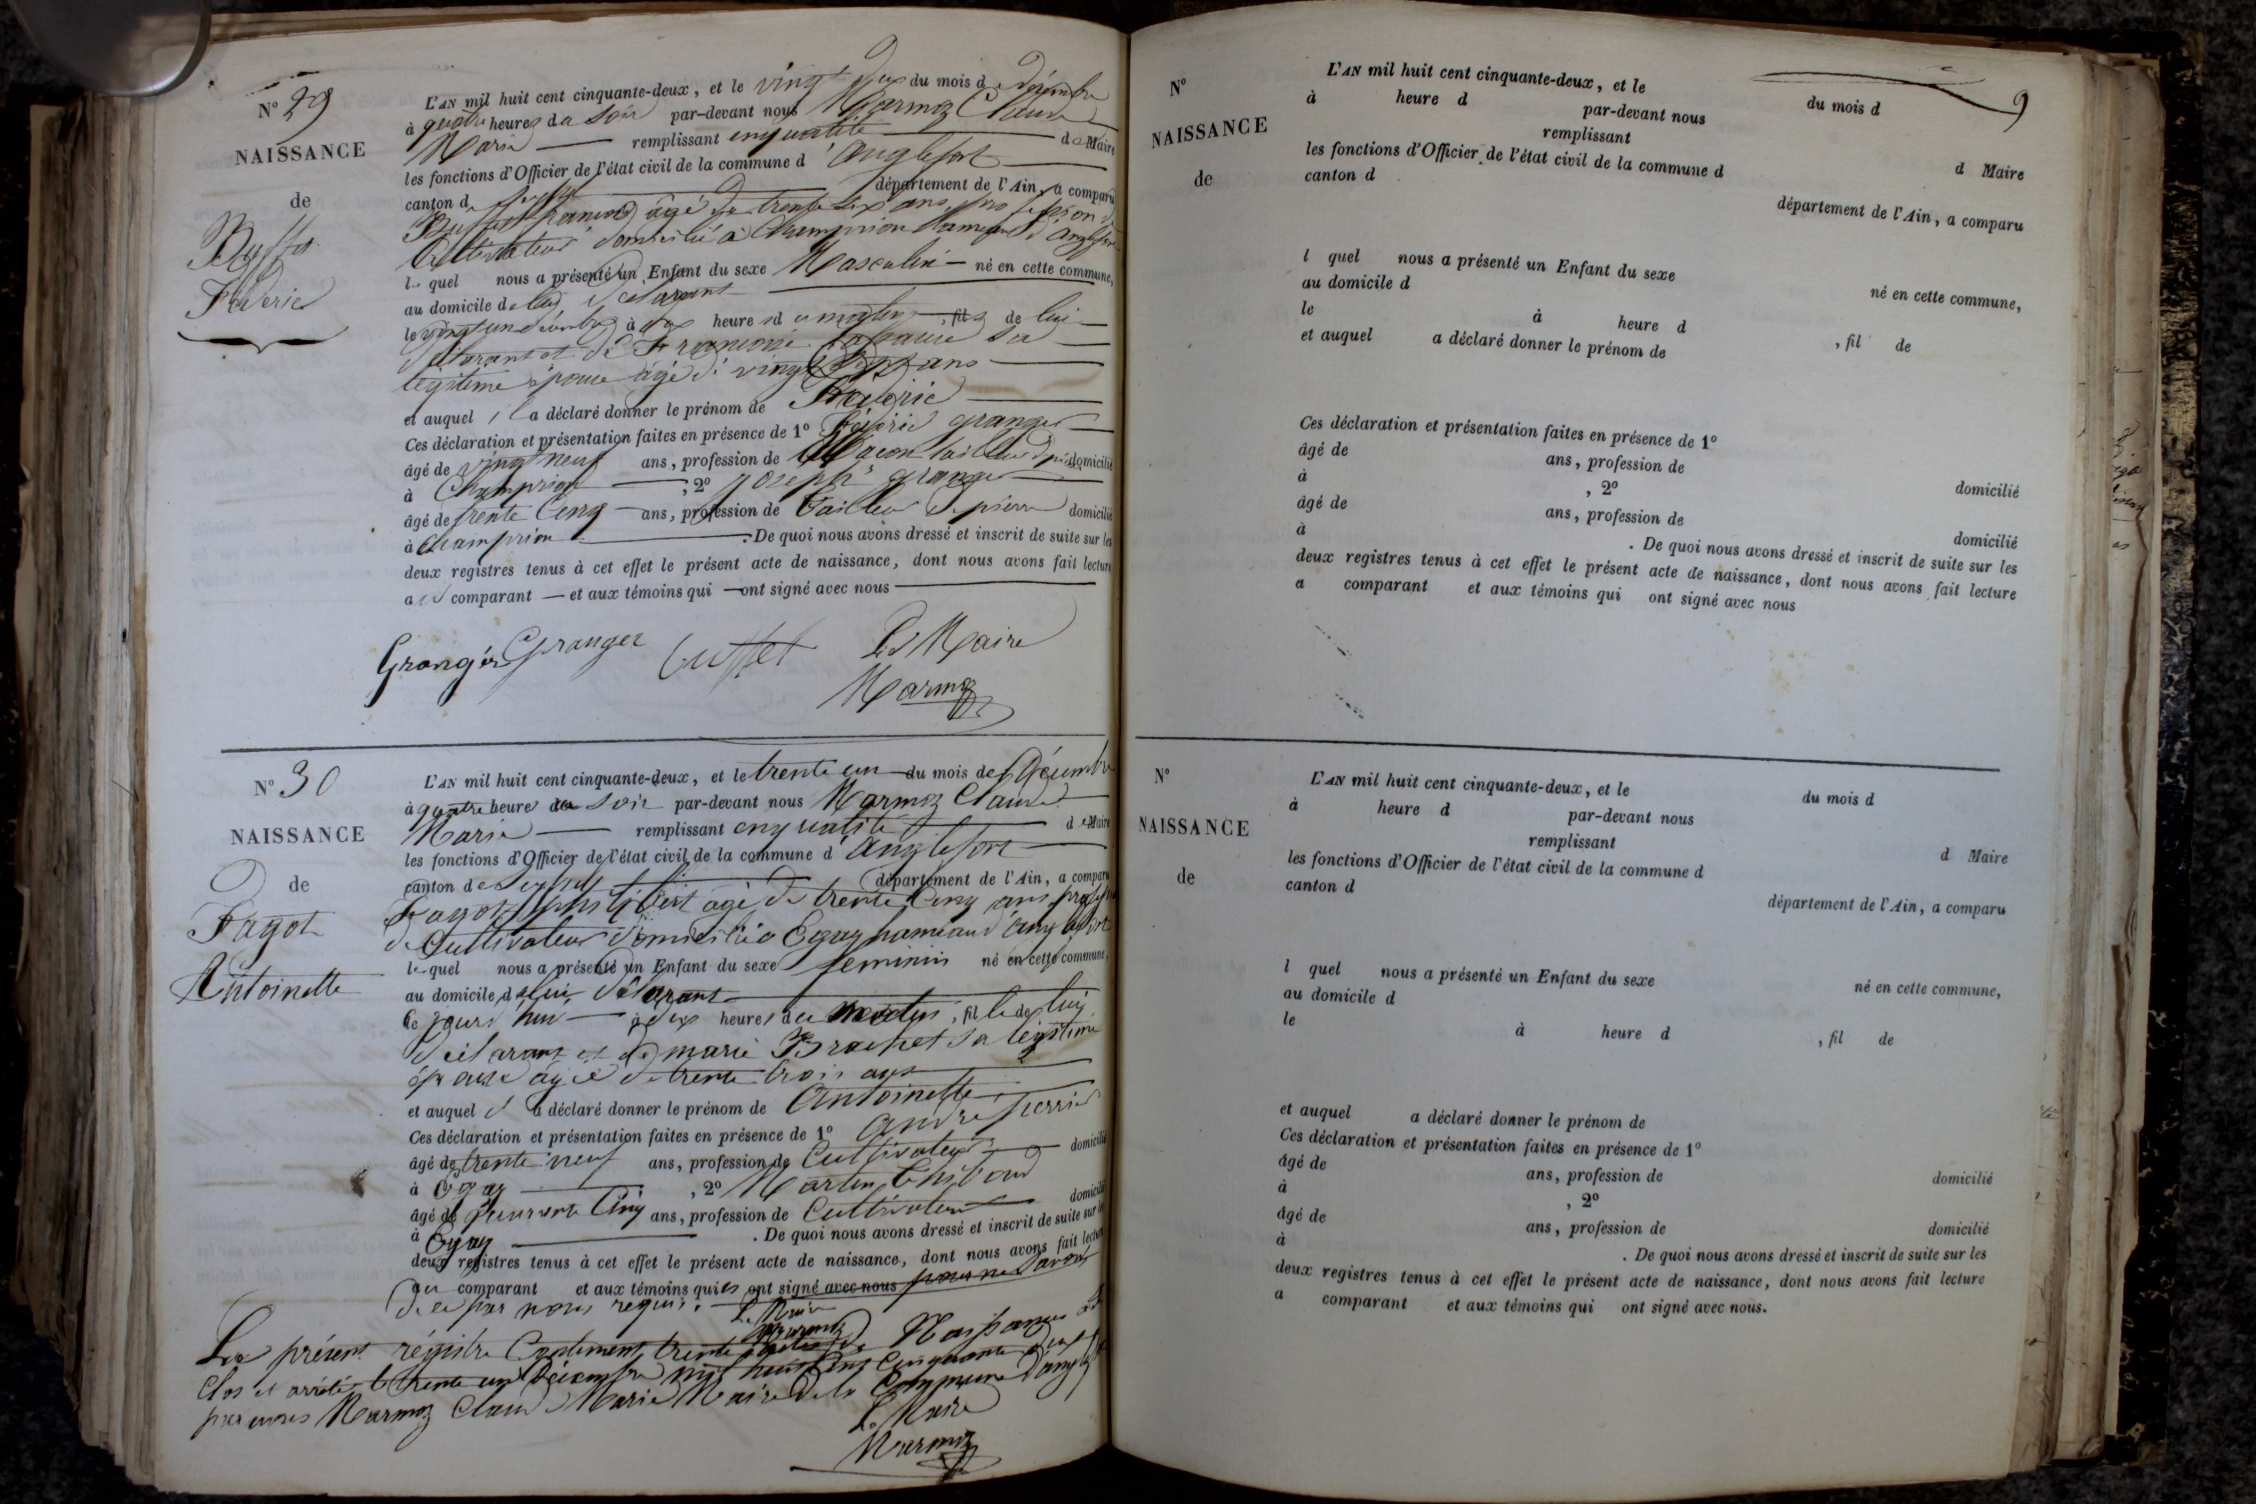 N° 29
NAISSANCE
de
Buffet
Fréderic
L'AN mil huit cent cinquante-deux, et le vingt deux du mois de décembre
à quatre heures du soir par-devant nous Marmoz Claude
Marie remplissant en qualité de Maire
les fonctions d'Officier de l'état civil de la commune d'anglefort
canton de département de l'Ain, a comparu
Buffet françois âgé de trente six ans
Cultivateur domicilié à Champrion hameau d'anglefort
lequel nous a présenté un Enfant du sexe Masculin né en cette commune,
au domicile de déclarant
le vingt un décembre à heures du matin, fils de lui
déclarant et de françoise sa
légitime épouse âgé de vingt ans
et auquel il a déclaré donner le prénom de Fréderic
Ces déclaration et présentation faites en présence de 1° granger
âgé de vingt neuf ans, profession de domicilié
à Champrion , 2° joseph granger
âgé de trente Cinq ans, profession de tailleur de pierre domicilié
à Champrion . De quoi nous avons dressé et inscrit de suite sur les
deux registres tenus à cet effet le présent acte de naissance, dont nous avons fait lecture
au comparant et aux témoins qui ont signé avec nous
Granger Granger Buffet Le Maire
Marmoz
N° 30
NAISSANCE
de
Fagot
Antoinette
L'AN mil huit cent cinquante-deux, et le trente un du mois de Décembre
à quatre heures du soir par-devant nous Marmoz Claude
Marie remplissant en qualité de Maire
les fonctions d'Officier de l'état civil de la commune d'anglefort
canton de seyssel département de l'Ain, a comparu
Fagot âgé de trente Cinq ans profession
de Cultivateur domicilié a Eyay hameau d'anglefort
lequel nous a présenté un Enfant du sexe feminin né en cette commune,
au domicile de lui déclarant
ce jourd'hui à deux heures du matin, fille de lui
déclarant et de marie Brachet sa légitime
épouse âgée de trente trois ans
et auquel il a déclaré donner le prénom de Antoinette
Ces déclaration et présentation faites en présence de 1° andré perrier
âgé de trente neuf ans, profession de Cultivateur domicilié
à Eyay , 2° Martin
âgé de quarante Cinq ans, profession de Cultivateur domicilié
à Eyay . De quoi nous avons dressé et inscrit de suite sur les
deux registres tenus à cet effet le présent acte de naissance, dont nous avons fait lecture
au comparant et aux témoins qui ont signé avec nous pour ne savoir
de ce par nous requis. Le Maire
Marmoz
Le présent régistre Contenant trente actes de Naissances
Clos et arrêté le trente un Décembre mil huit Cent Cinquante deux
par nous Marmoz Claude Marie Maire de la Commune d'anglefort
Le Maire
Marmoz
9
N°
NAISSANCE
de
L'AN mil huit cent cinquante-deux, et le du mois d
à heure d par-devant nous
remplissant d Maire
les fonctions d'Officier de l'état civil de la commune d
canton d département de l'Ain, a comparu
l quel nous a présenté un Enfant du sexe né en cette commune,
au domicile d
le à heure d , fil de
et auquel a déclaré donner le prénom de
Ces déclaration et présentation faites en présence de 1°
âgé de ans, profession de domicilié
à , 2°
âgé de ans, profession de domicilié
à . De quoi nous avons dressé et inscrit de suite sur les
deux registres tenus à cet effet le présent acte de naissance, dont nous avons fait lecture
a comparant et aux témoins qui ont signé avec nous
N°
NAISSANCE
de
L'AN mil huit cent cinquante-deux, et le du mois d
à heure d par-devant nous
remplissant d Maire
les fonctions d'Officier de l'état civil de la commune d
canton d département de l'Ain, a comparu
l quel nous a présenté un Enfant du sexe né en cette commune,
au domicile d
le à heure d , fil de
et auquel a déclaré donner le prénom de
Ces déclaration et présentation faites en présence de 1°
âgé de ans, profession de domicilié
à , 2°
âgé de ans, profession de domicilié
à . De quoi nous avons dressé et inscrit de suite sur les
deux registres tenus à cet effet le présent acte de naissance, dont nous avons fait lecture
a comparant et aux témoins qui ont signé avec nous.